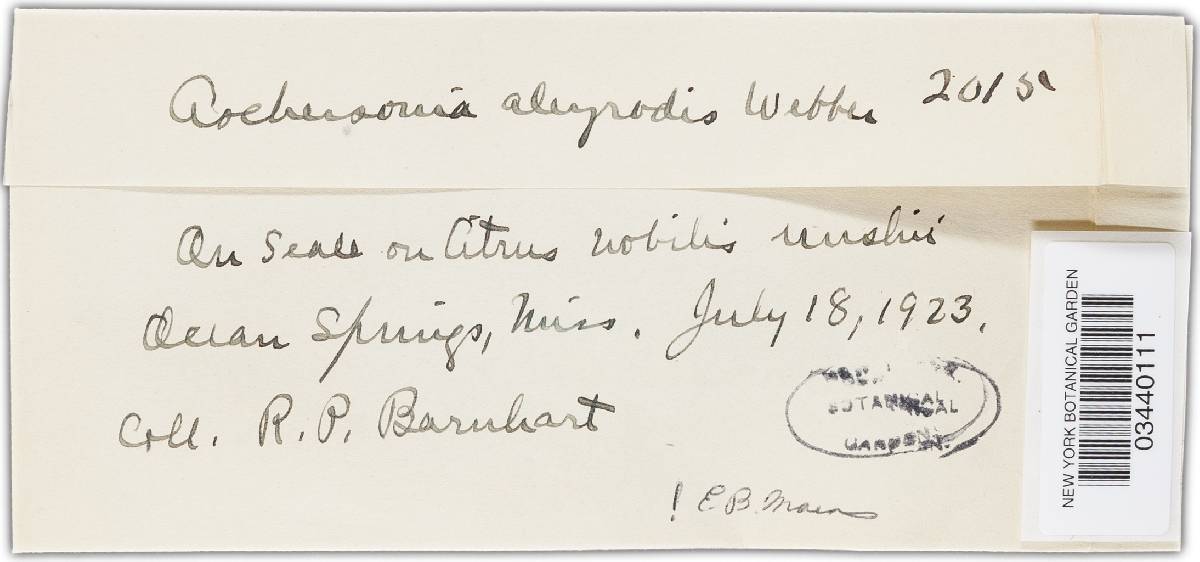 Aschersonia aleyrodis Webber 2015
On Scale on Citrus nobilis unshii
Ocean Springs, Miss. July 18, 1923.
Coll. R. P. Barnhart
BOTANICAL
GARDEN.
! E B. Mains
NEW YORK BOTANICAL GARDEN
03440111